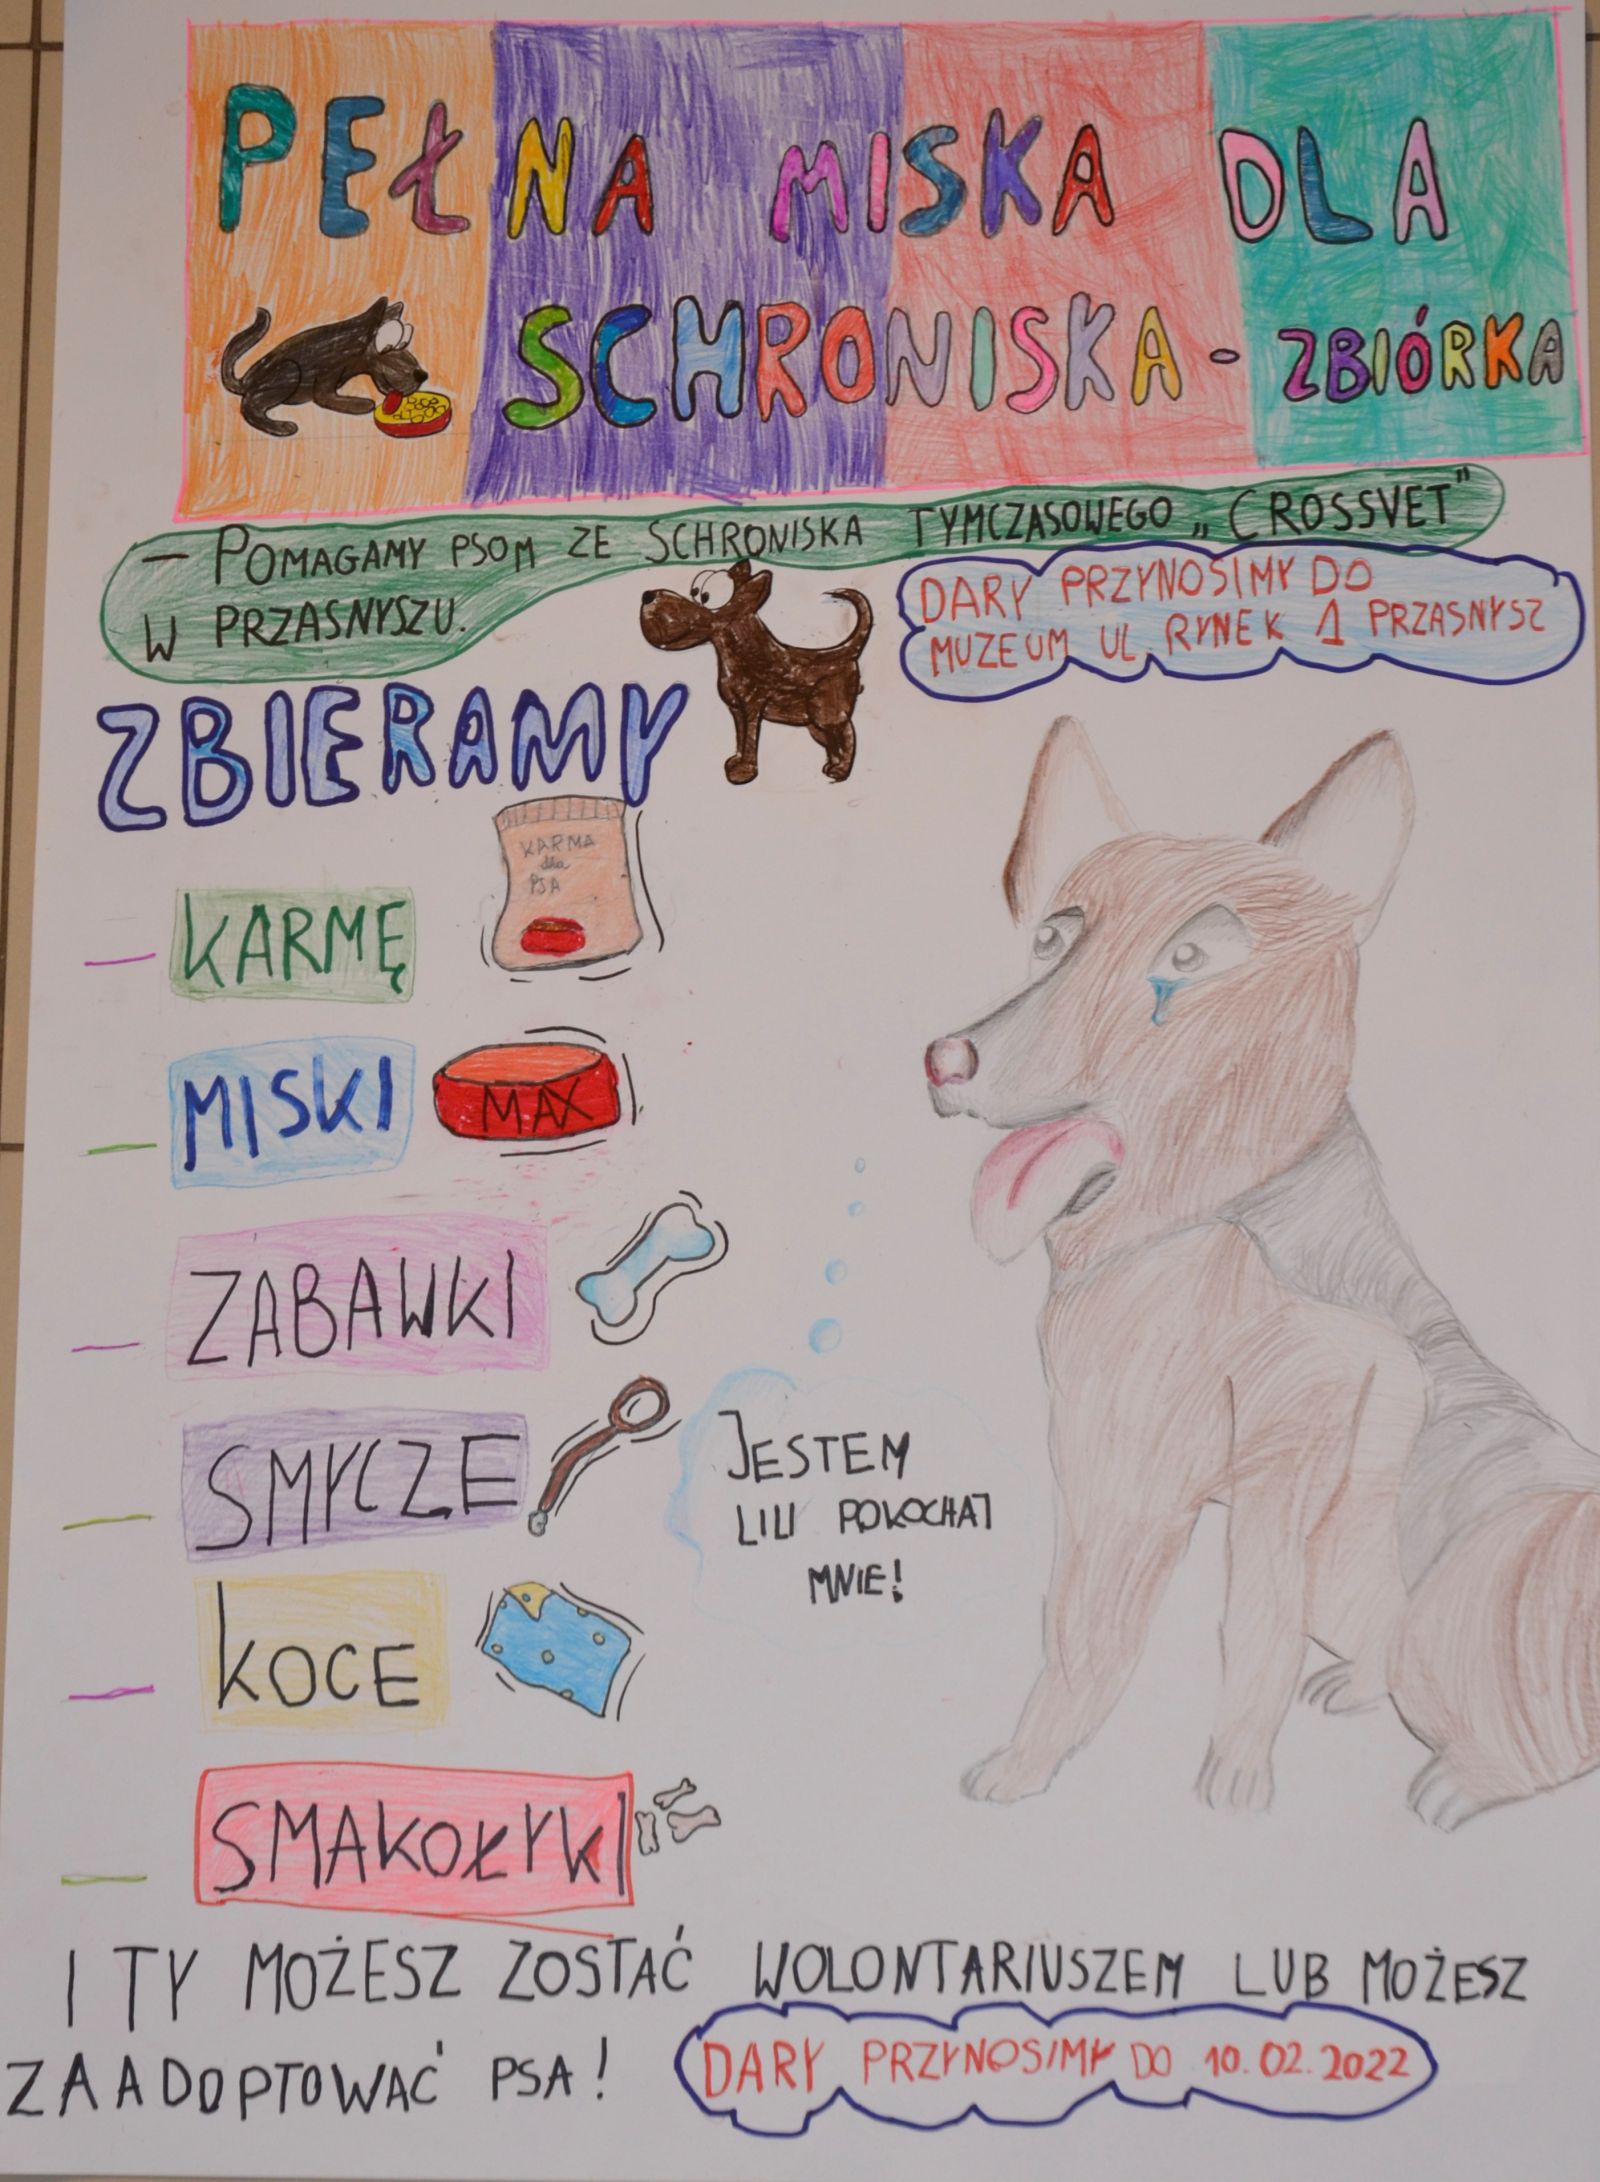 PEŁNA MISKA DLA
SCHRONISKA - ZBIÓRKA
- POMAGAMY PSOM ZE SCHRONISKA TYMCZASOWEGO „CROSSVET"
W PRZASNYSZU.
DARY PRZYNOSIMY DO
MUZEUM UL. RYNEK 1 PRZASNYSZ
ZBIERAMY
KARMA
dla
PSA
- KARMĘ
- MISKI
MAX
- ZABAWKI
- SMYCZE
JESTEM
LILI POKOCHAJ
MNIE!
- KOCE
- SMAKOŁYKI
I TY MOŻESZ ZOSTAĆ WOLONTARIUSZEM LUB MOŻESZ
ZAADOPTOWAĆ PSA!
DARY PRZYNOSIMY DO 10.02.2022